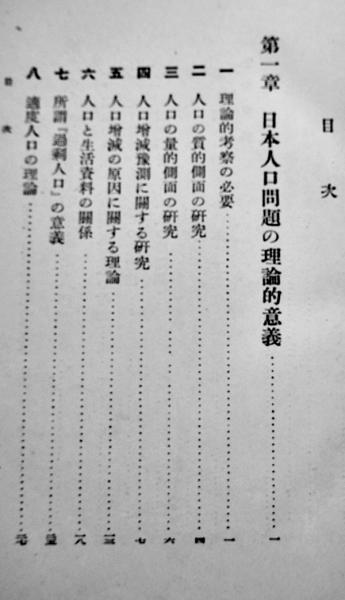 目次
第一章 日本人口問題の理論的意義……一
一 理論的考察の必要……一
二 人口の質的側面の研究……四
三 人口の量的側面の研究……六
四 人口増減豫測に關する研究……七
五 人口増減の原因に關する理論……一三
六 人口と生活資料の關係……一八
七 所謂『過剩人口』の意義
八 適度人口の理論
目次